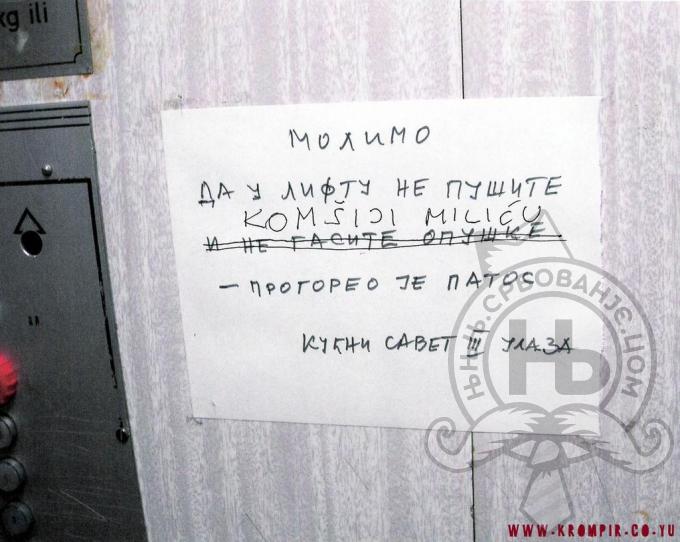 kg ili
МОЛИМО
ДА У ЛИФТУ НЕ ПУШИТЕ
KOMŠIJI MILIĆU
И НЕ ГАСИТЕ ОПУШКЕ.
– ПРОГОРЕО ЈЕ ПАТОС
КУЋНИ САВЕТ III УЛАЗА
ЊЊЊ.СРБОВАЊЕ.ЦОМ
Њ
WWW.KROMPIR.CO.YU